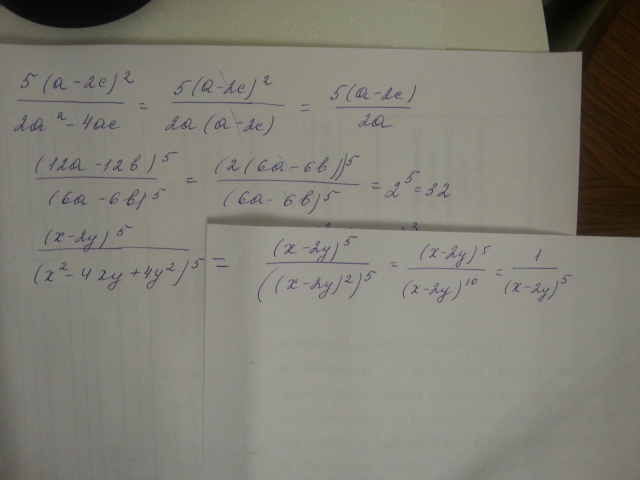 5(a-2c)²/2a²-4ac = 5(a-2c)²/2a(a-2c) = 5(a-2c)/2a
(12a-12b)⁵/(6a-6b)⁵ = (2(6a-6b))⁵/(6a-6b)⁵ = 2⁵=32
(x-2y)⁵/(x²-4xy+4y²)⁵ = (x-2y)⁵/((x-2y)²)⁵ = (x-2y)⁵/(x-2y)¹⁰ = 1/(x-2y)⁵